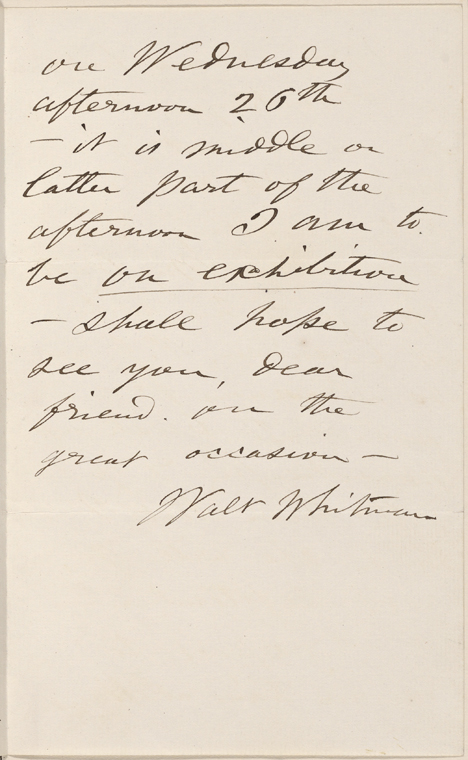 on Wednesday
afternoon 26th
– it is middle or
latter part of the
afternoon I am to
be on exhibition
– shall hope to
see you, dear
friend. on the
great occasion –
Walt Whitman